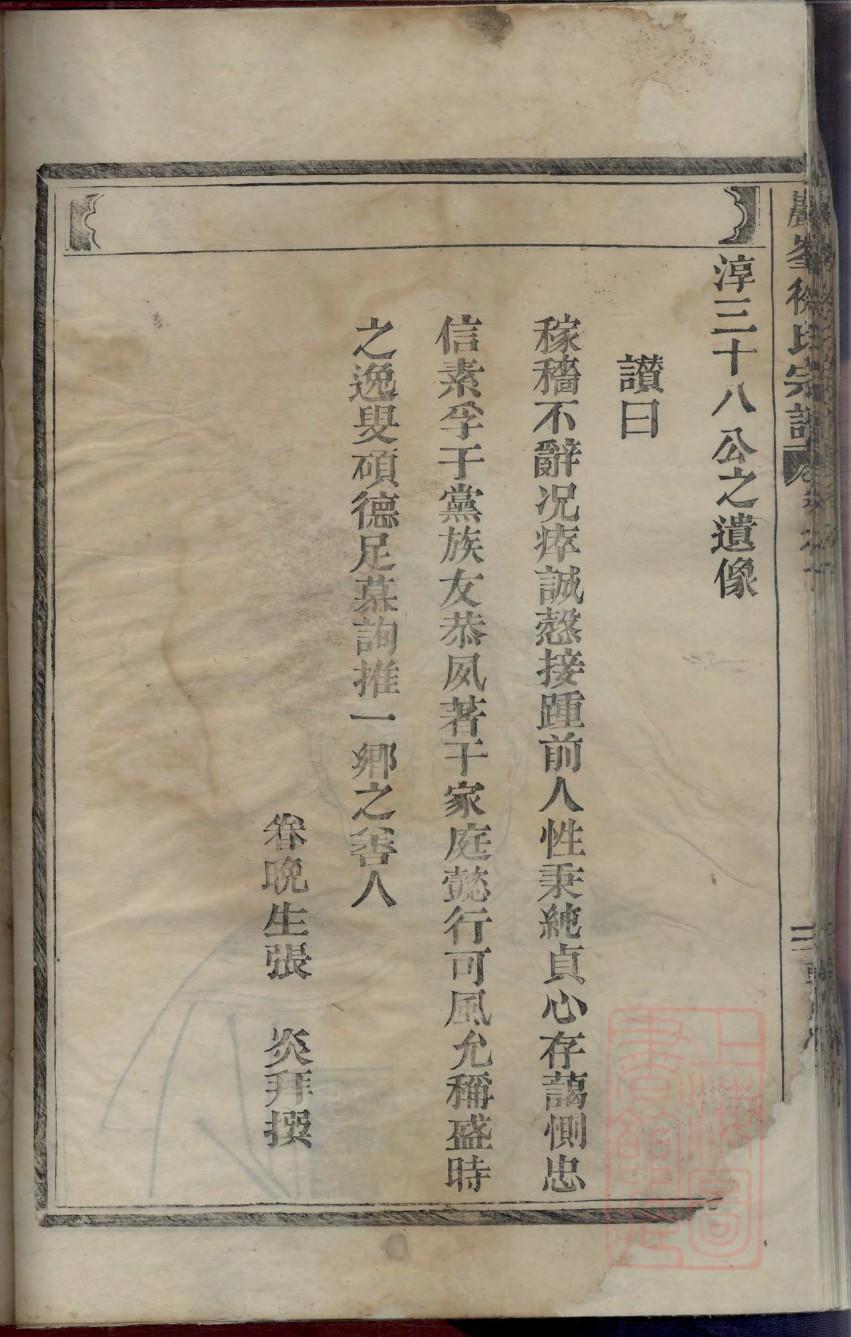 巖峯徐氏宗譜
淳三十八公之遺像
讃曰
稼穡不辭况瘁誠慤接踵前人性秉純貞心存藹惻忠
信素孚于黨族友恭夙著于家庭懿行可風允稱盛時
之逸叟碩德足慕詢推一鄉之善人
眷晚生張　炎拜撰
上海圖
書館藏